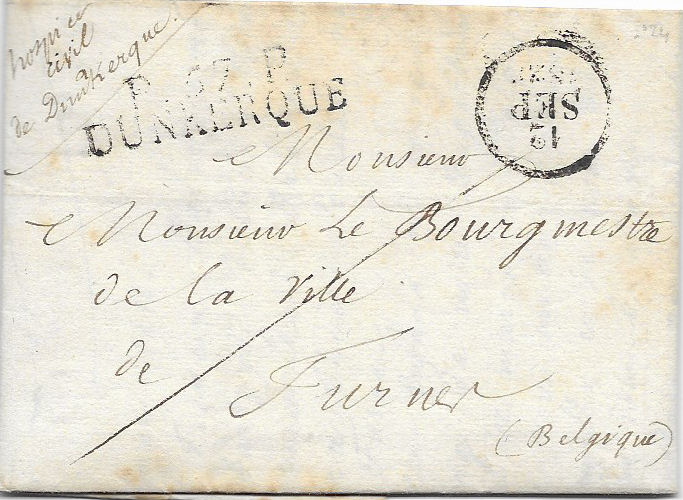 hospice
civil
de Dunkerque.
P. 57. P.
DUNKERQUE
19
SEP
Monsieur
Monsieur Le Bourgmestre
de la Ville
de
Furnes
(Belgique)